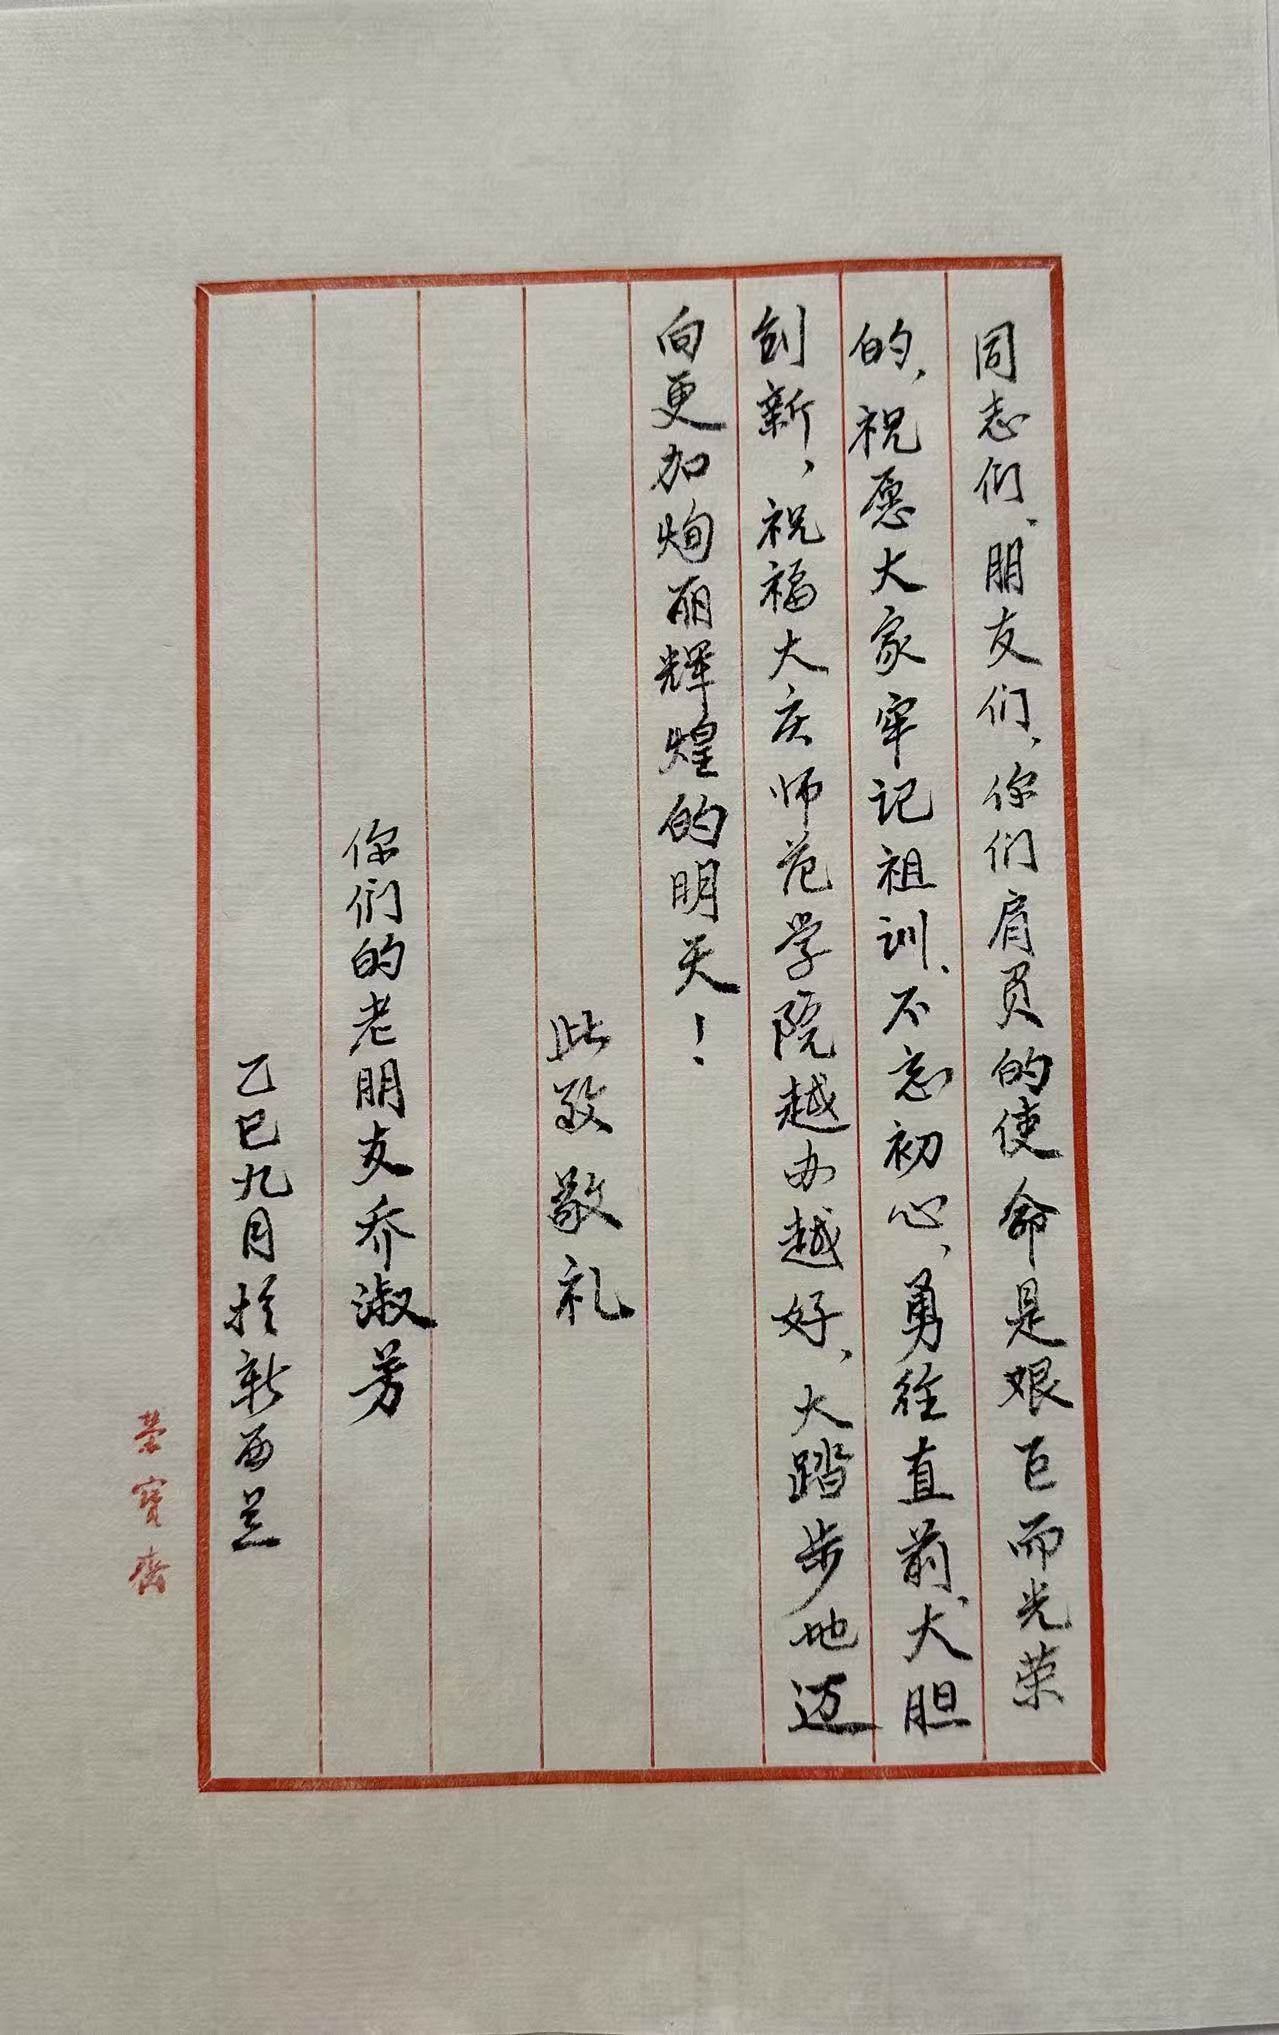 同志们、朋友们、你们肩负的使命是艰巨而光荣
的，祝愿大家牢记祖训、不忘初心，勇往直前、大胆
创新，祝福大庆师范学院越办越好，大踏步地迈
向更加炳丽辉煌的明天！
此致敬礼
你们的老朋友乔淑芳
乙巳九月於新西兰
荣宝斋